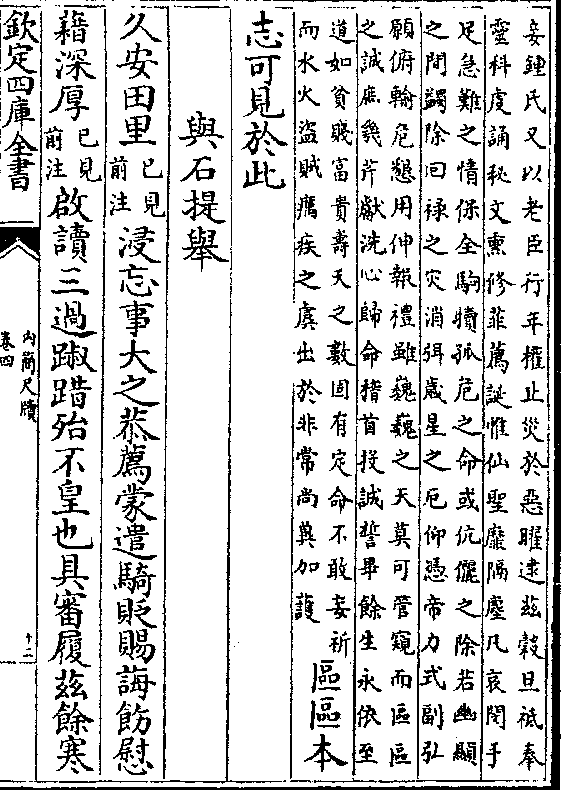 妾鍾氏又以老臣行年權止災於惡曜逮茲穀旦祗奉
靈科虔誦秘文熏修菲薦誕惟仙聖靡隔塵凡哀閔手
足急難之情保全駒犢孤危之命或伉儷之除若幽顯
之間蠲除回祿之灾消弭歲星之厄仰憑帝力式副弘
願俯輸危懇用伸報禮雖巍巍之天莫可管窺而區區
之誠庶幾芹獻洗心歸命稽首投誠誓畢餘生永依至
道如貧賤富貴壽夭之數固有定命不敢妄祈
而水火盜賊癘疾之虞出於非常尚冀加護
區區本
志可見於此
與石提舉
久安田里已見前注浸忘事大之恭薦蒙遣騎貶賜誨飭慰
藉深厚已見前注啟讀三過踧踖殆不皇也具審履茲餘寒
欽定四庫全書
內簡尺牘
卷四
十二